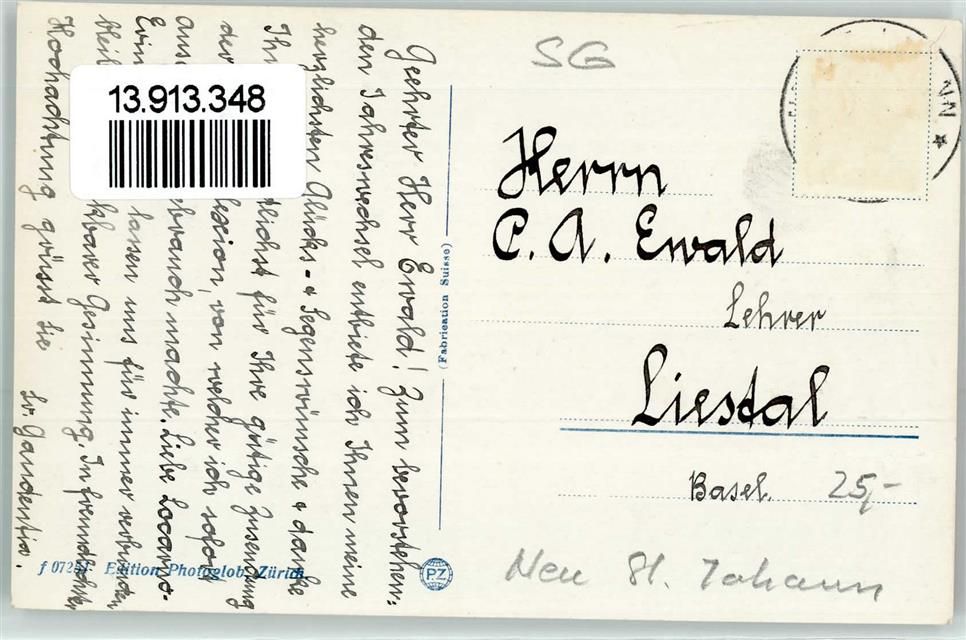 SG
13.913.348
Geehrter Herr Ewald! Zum bevorstehen-
den Jahreswechsel entbiete ich Ihnen meine
herzlichsten Glücks- & Segenswünsche & danke
für Ihre gütige Zusendung
der von welcher ich sofort
machte. Liebe Locarno-
lassen uns für immer verbunden
bleiben Gesinnung. In freundlichster
Hochachtung grüsst Sie
Sr. Gaudentia.
(Fabrication Suisse)
Herrn
C. A. Ewald
Lehrer
Liestal
Basel.
25,-
Neu St. Johann
Edition Photoglob, Zürich
PZ